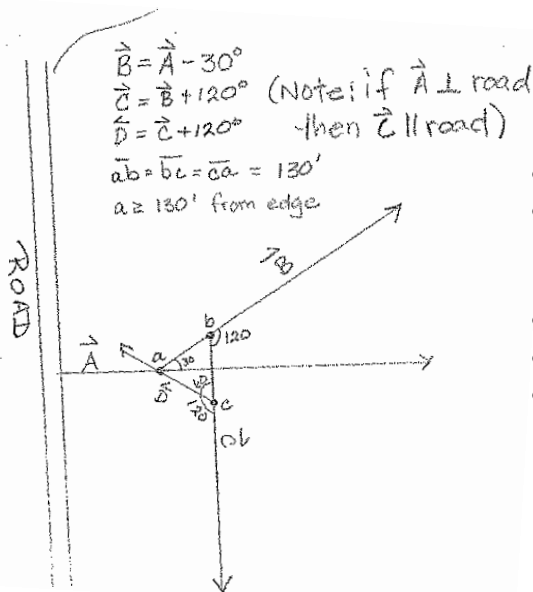 B⃗ = A⃗ - 30°
C⃗ = B⃗ + 120° (Note: if A⃗ ⊥ road
D⃗ = C⃗ + 120° then C⃗ || road)
ab = bc = ca = 130'
a ≥ 130' from edge
ROAD
B⃗
b
120
A⃗
a
30
D⃗
60
120
c
C⃗